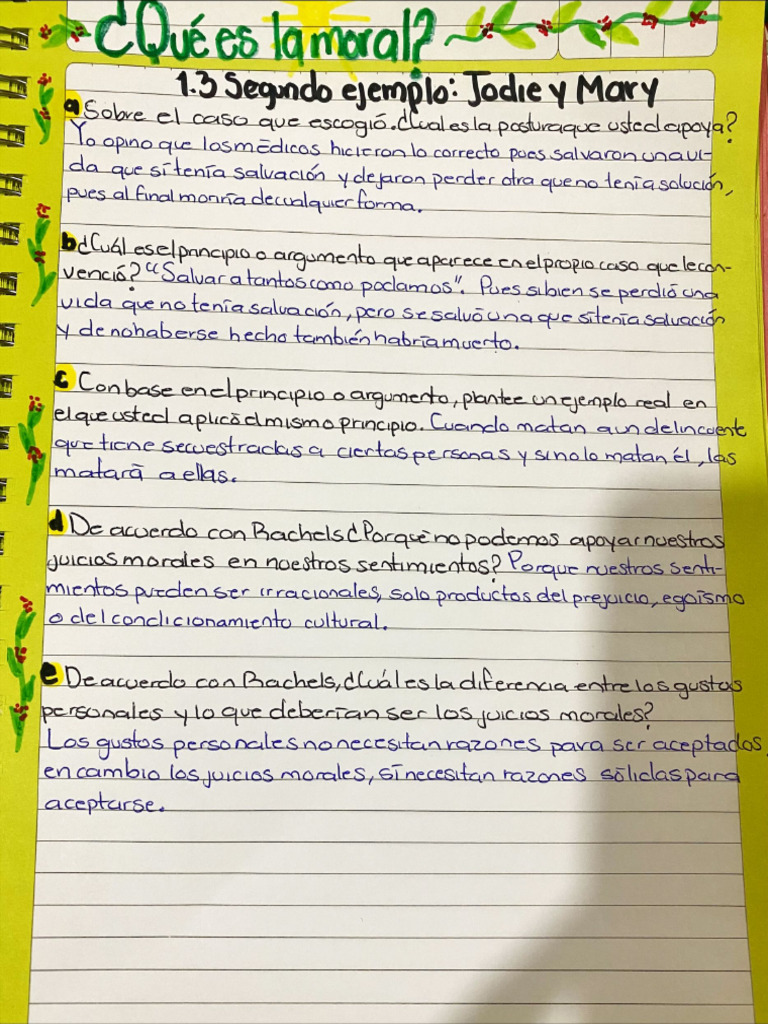 ¿Qué es la moral?
1.3 Segundo ejemplo: Jodie y Mary
a Sobre el caso que escogió. ¿Cual es la postura que usted apoya?
Yo opino que los médicos hicieron lo correcto pues salvaron una vi-
da que sí tenía salvación y dejaron perder otra que no tenía solución,
pues al final moriría de cualquier forma.
b ¿Cuál es el principio o argumento que aparece en el propio caso que le con-
venció? "Salvar a tantos como podamos". Pues si bien se perdió una
vida que no tenía salvación, pero se salvó una que si tenía salvación
y de no haberse hecho también habría muerto.
c Con base en el principio o argumento, plantee un ejemplo real en
el que usted aplicó el mismo principio. Cuando matan a un delincuente
que tiene secuestradas a ciertas personas y si no lo matan él, las
matará a ellas.
d De acuerdo con Rachels ¿Por qué no podemos apoyar nuestros
juicios morales en nuestros sentimientos? Porque nuestros senti-
mientos pueden ser irracionales, solo productos del prejuicio, egoísmo
o del condicionamiento cultural.
e De acuerdo con Rachels, ¿Cuál es la diferencia entre los gustos
personales y lo que deberían ser los juicios morales?
Los gustos personales no necesitan razones para ser aceptados,
en cambio los juicios morales, sí necesitan razones sólidas para
aceptarse.